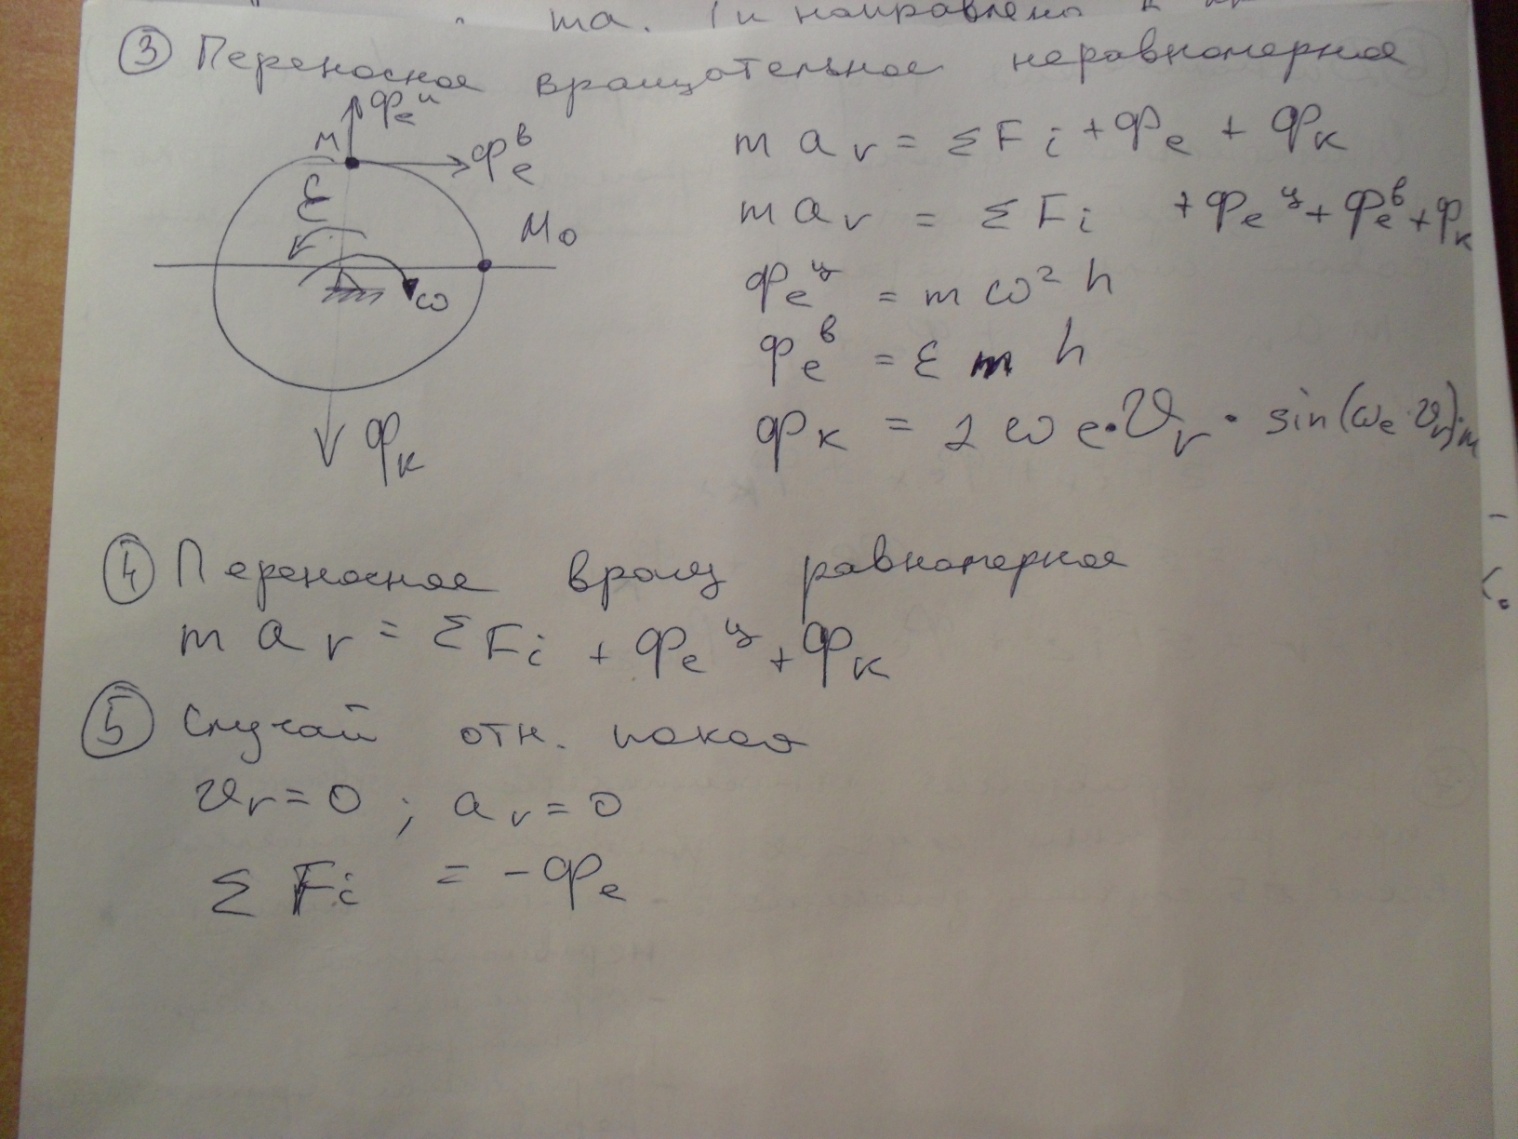 та. и направлена к
③ Переносное вращательное неравномерное
Φeᵘ
M
Φeᵇ
ε
M₀
ω
Φк
m a r = ΣFi + Φe + Φк
m a r = ΣFi + Φeᶣ + Φeᵇ + Φк
Φeᶣ = m ω² h
Φeᵇ = ε m h
Φк = 2 ω e · 𝜗r · sin(ωe 𝜗r)·m
④ Переносное вращ равномерное
m a r = ΣFi + Φeᶣ + Φк
⑤ Случай отн. покоя
𝜗r = 0 ; a r = 0
ΣFi = -Φe